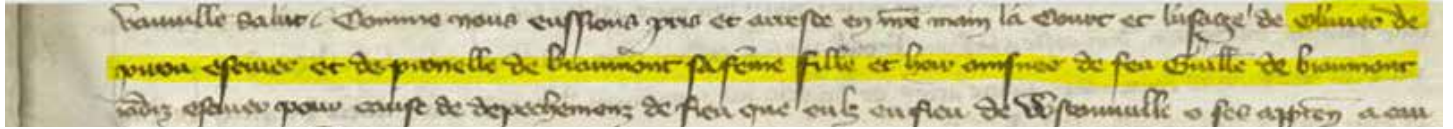 vauville salut Comme nous eussions pris et arreste en nre main la Court et lusage de Olivier de
pirou escuier et de pronelle de briaumont sa feme fille et heir ainsnee de feu Guille de briaumont
jadiz escuier pour cause de depechement de fieu que eulz en fieu de a ses apparten a eulx